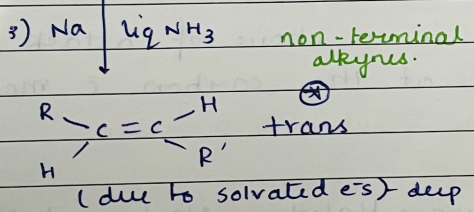 3) Na | liq NH3 non-terminal
alkynes.
R H
C = C trans
H R'
(due to solvated e-s)- deep